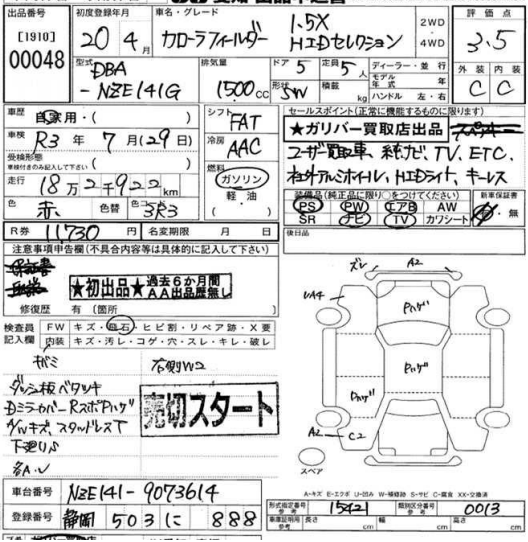 出品番号 初度登録年月 車名・グレード 2WD・4WD 評価点
[1910] 00048 20年4月 カローラフィールダー 1.5X HIDセレクション 3.5
型式 DBA-NZE141G 排気量 1500cc ドア 5 定員 5人 ディーラー・並行 外装 内装
形状 SW 積載 kg モデル年式 年 ハンドル 左・右 C C
車歴 自家用・( ) シフト FAT セールスポイント(正常に機能するものに限ります)
車検 R3年7月(29日) 冷房 AAC ★ガリバー買取店出品
受検形態 車検付きのみ記入して下さい ( ) 燃料 ガソリン 軽油 ( ) ユーザー買取車、純ナビ、TV、ETC、
走行 18万2千922km 社外アルミホイル、HIDライト、キーレス
色 赤 色替 3R3 装備品(純正品に限り○をつけてください) 新車保証書
PS PW エアB AW 無
SR ナビ TV カワシート
R券 11,730円 名変期限 月 日 後日品
注意事項申告欄(不具合内容等は具体的に記入して下さい)
★初出品★ 過去6か月間AA出品歴無し
修復歴 有(箇所
検査員記入欄 FW キズ・飛石・ヒビ割・リペア跡・X要
内装 キズ・汚レ・コゲ・穴・スレ・キレ・破レ
ズレ A2
UA4 Pハゲ
Pハゲ
Pハゲ
A2 C2
スペア
キバミ 右側W2
ダッシュ板ベタツキ
DミラーカバーRスポPハゲ
A/Wキズ、スタッドレスT
下廻りS
各A・U
売切スタート
A-キズ E-エクボ U-凹み W-補修跡 S-サビ C-腐食 XX-交換済
車台番号 NZE141-9073614
登録番号 静岡 503 に 888
形式指定番号 参考 15421 類別区分番号 参考 0013
車庫証明用 参考 長さ cm 幅 cm 高さ cm